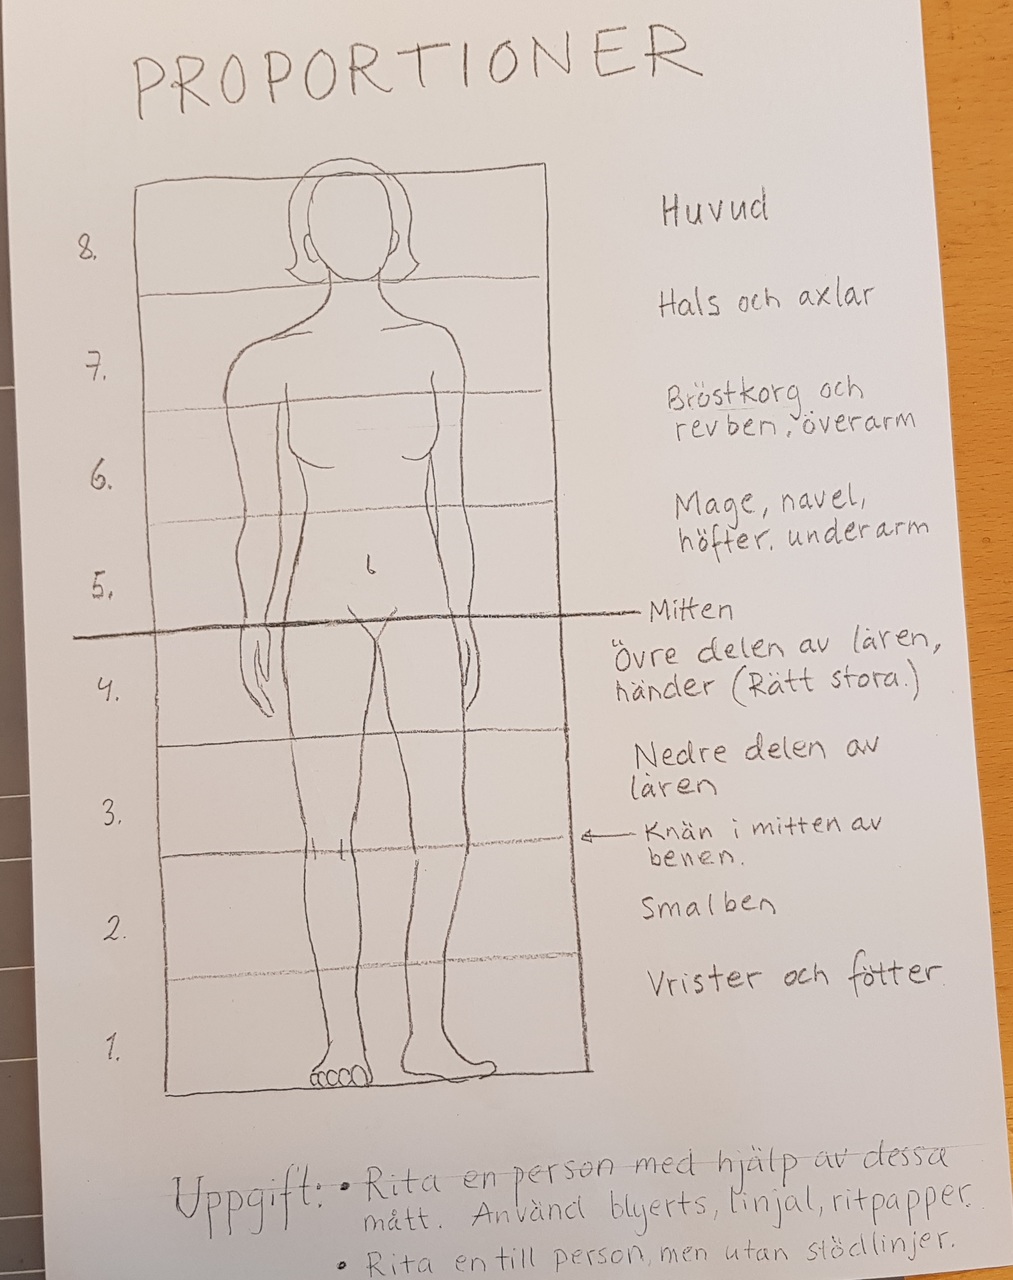 PROPORTIONER
8.
Huvud
Hals och axlar
7.
Bröstkorg och
revben, överarm
6.
Mage, navel,
höfter, underarm
5.
Mitten
Övre delen av låren,
händer (Rätt stora.)
4.
Nedre delen av
låren
3.
Knän i mitten av
benen.
Smalben
2.
Vrister och fötter
1.
Uppgift: • Rita en person med hjälp av dessa
mått. Använd blyerts, linjal, ritpapper.
• Rita en till person, men utan stödlinjer.